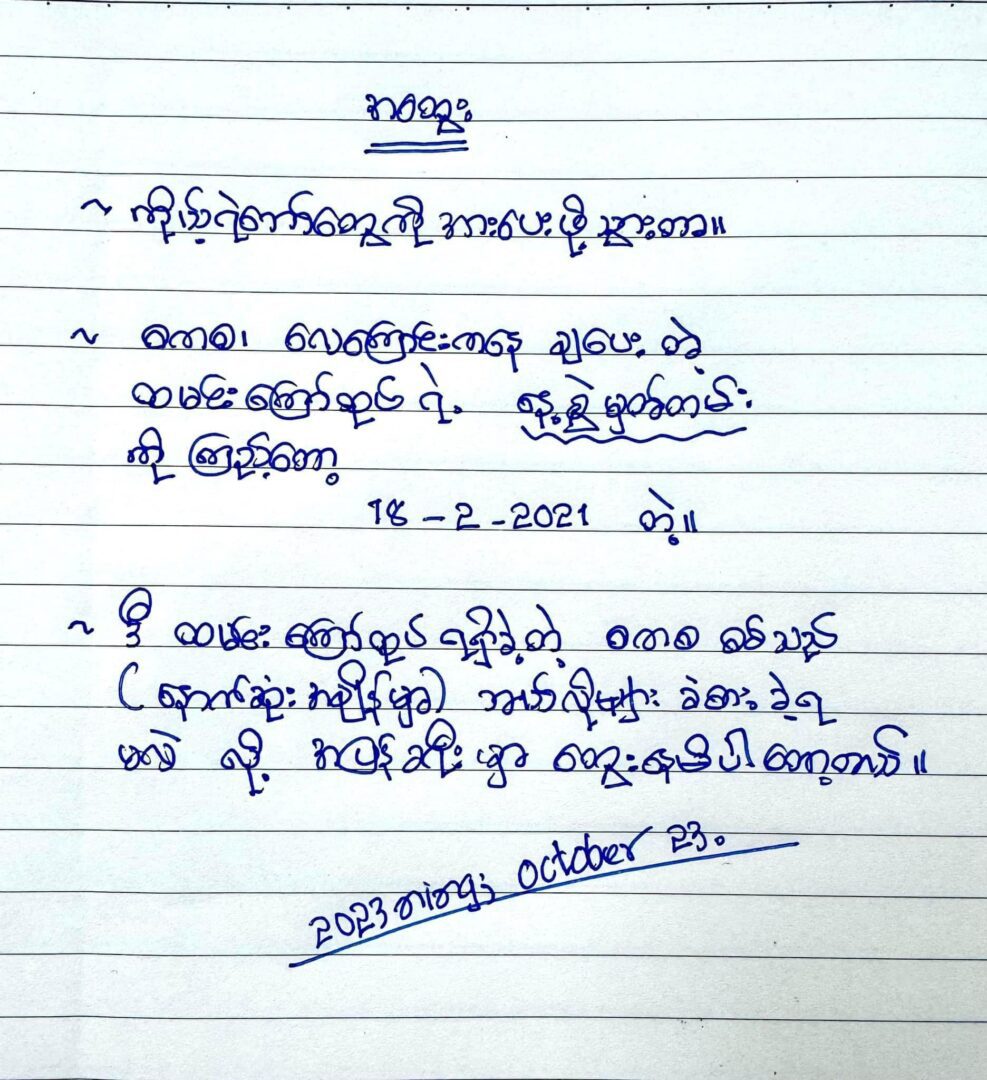 အတွေး
~ ကိုယ့်ရဲဘော်တွေကို အားပေးဖို့ သွားတာ။
~ စကစ၊ လေကြောင်းကနေ ချပေး တဲ့
ထမင်းကြော်ထုပ် ရဲ့ နေ့စွဲမှတ်တမ်း
ကို ကြည့်တော့
18 - 2 - 2021 တဲ့။
~ ဒီ ထမင်းကြော်ထုပ် ရရှိခဲ့တဲ့ စကစ စစ်သည်
(နောက်ဆုံးအချိန်မှာ) ဘယ်လိုများ ခံစားခဲ့ရ
မလဲ လို့ အပြန်ခရီးမှာ တွေးနေမိပါတော့တယ်။
2023 october 23.